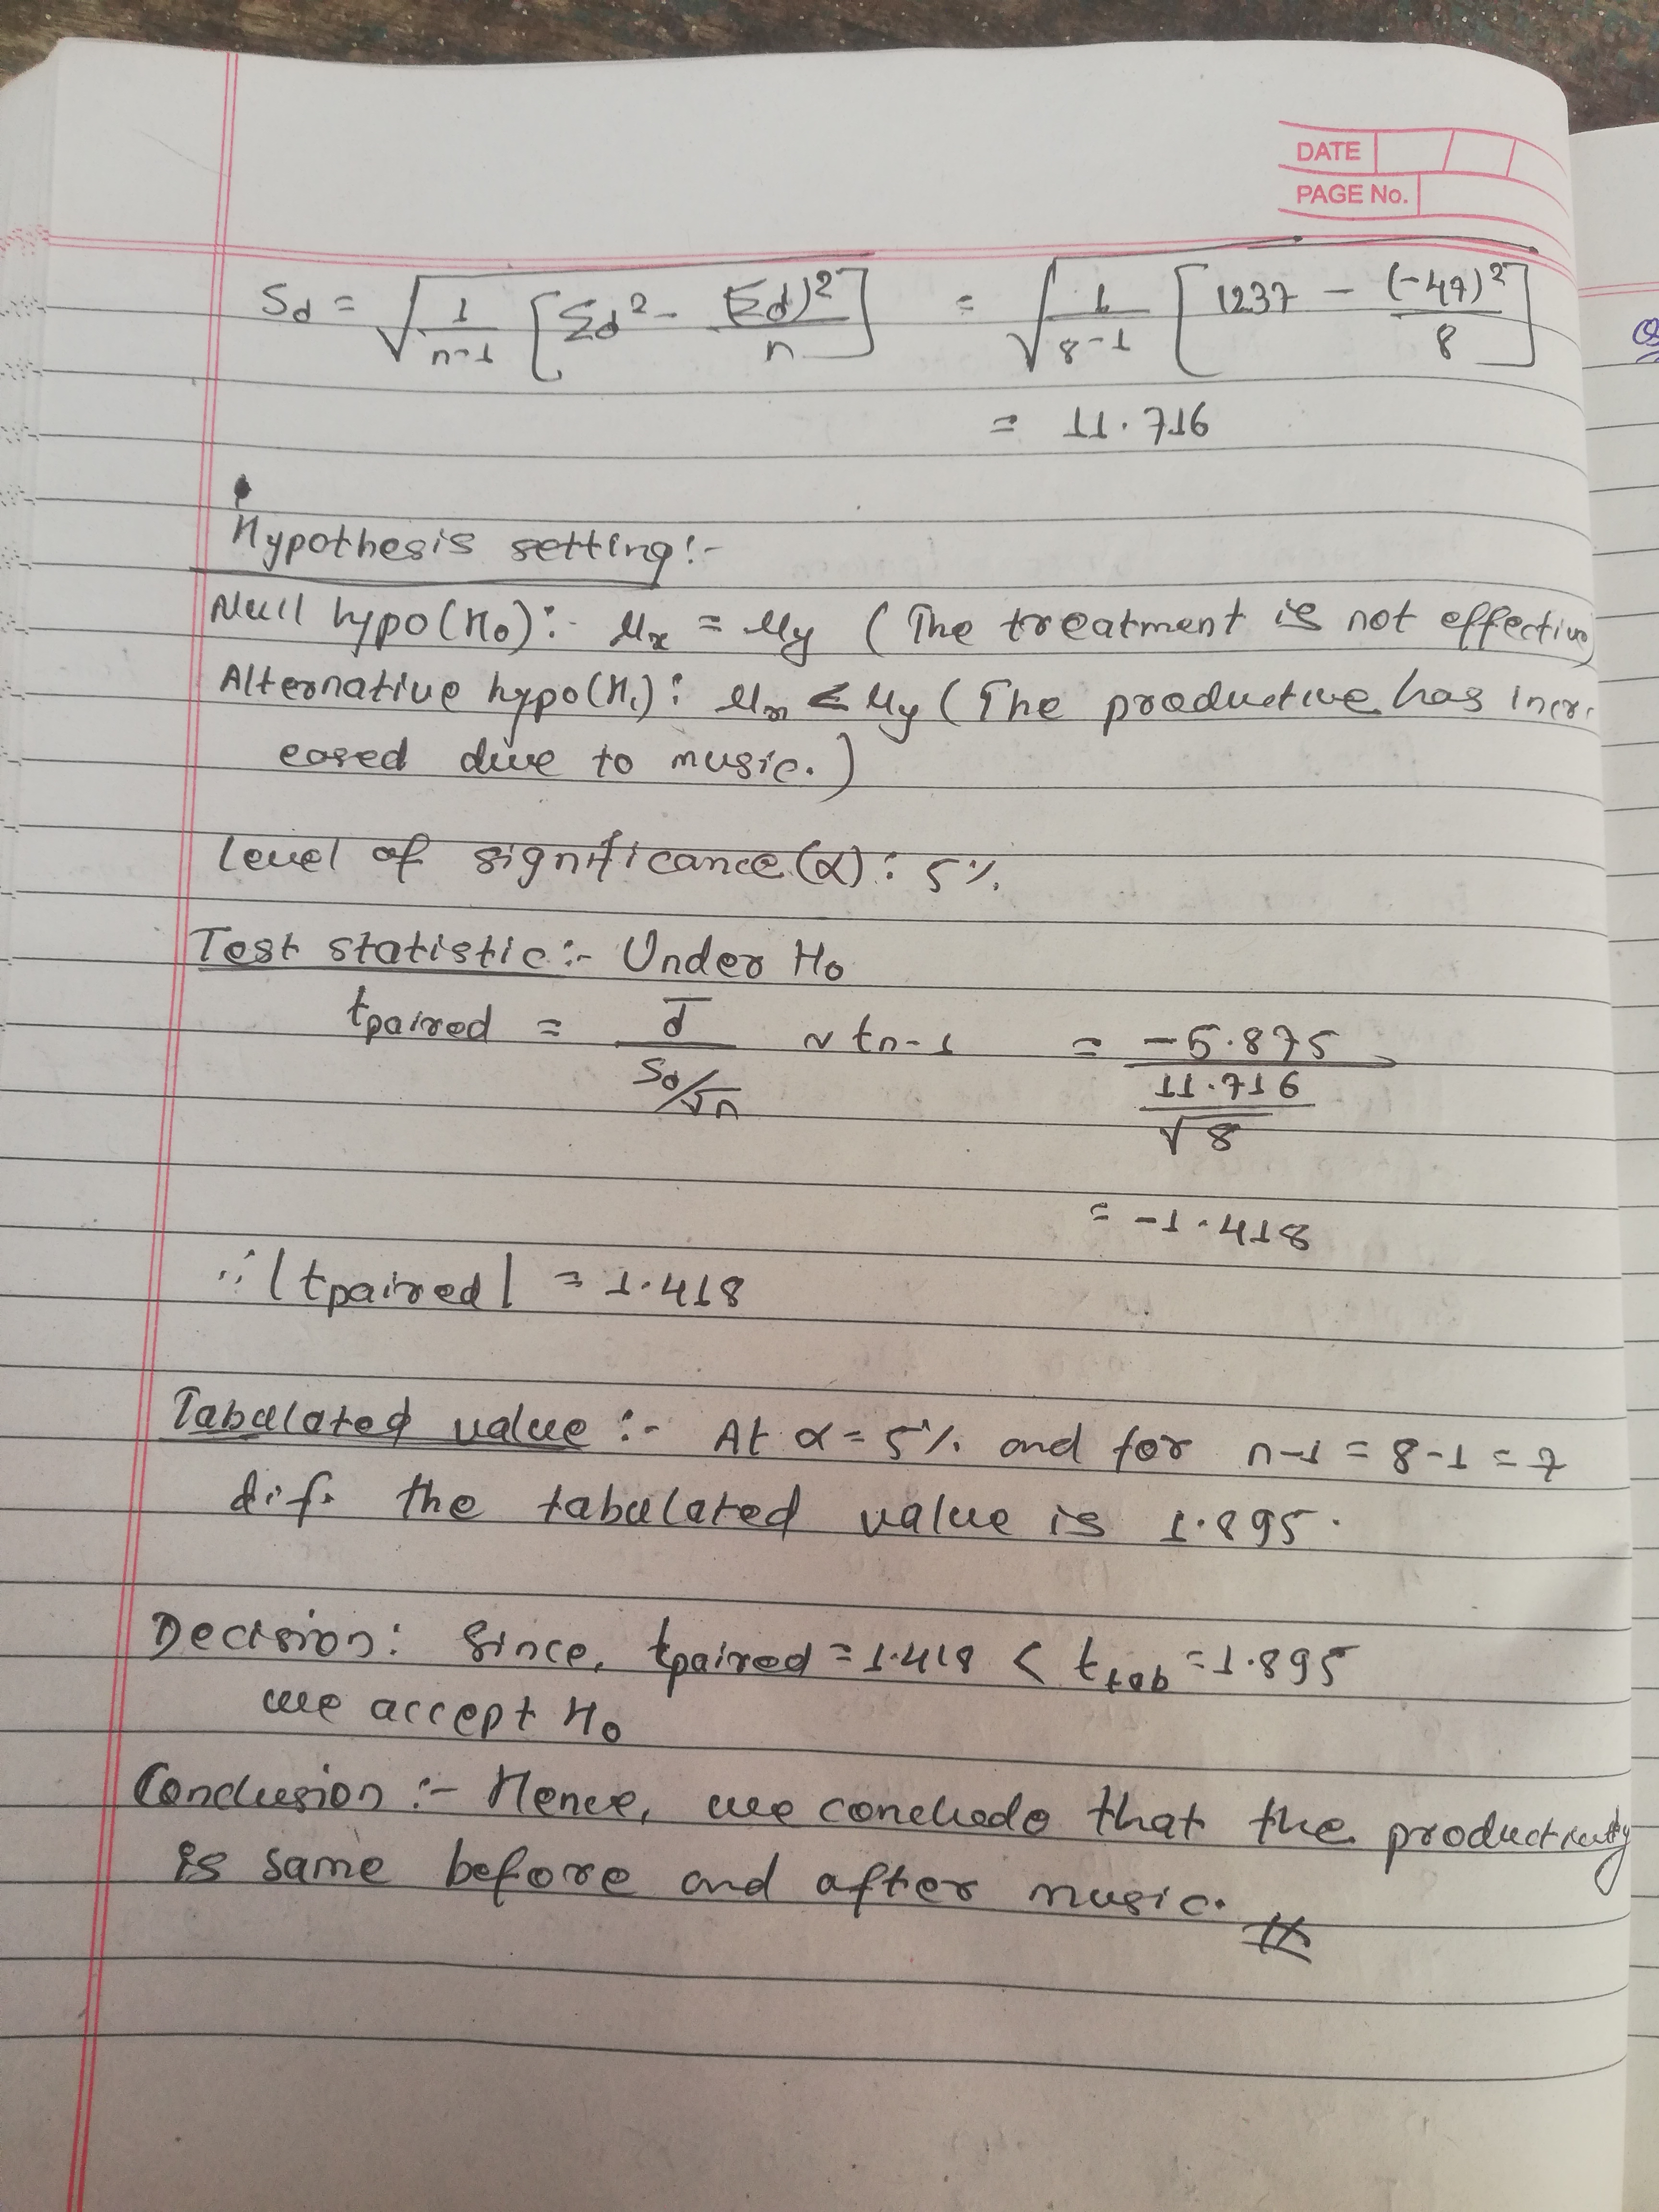 DATE
PAGE No.
Sd = √(1/(n-1) [Σd² - (Σd)²/n]) = √(1/(8-1) [1237 - (-47)²/8])
= 11.716
Hypothesis setting:-
Null hypo(H₀):- μx = μy (The treatment is not effective)
Alternative hypo(H₁): μx < μy (The productive has incr
eased due to music.)
level of significance(α): 5%
Test statistic:- Under H₀
tpaired = d̄/(Sd/√n) ~ tn-1 = -5.875/(11.716/√8)
= -1.418
∴ |tpaired| = 1.418
Tabulated value :- At α = 5% and for n-1 = 8-1 = 7
d.f. the tabulated value is 1.895.
Decision: Since, tpaired = 1.418 < ttab = 1.895
we accept H₀
Conclusion :- Hence, we conclude that the productivity
is same before and after music.